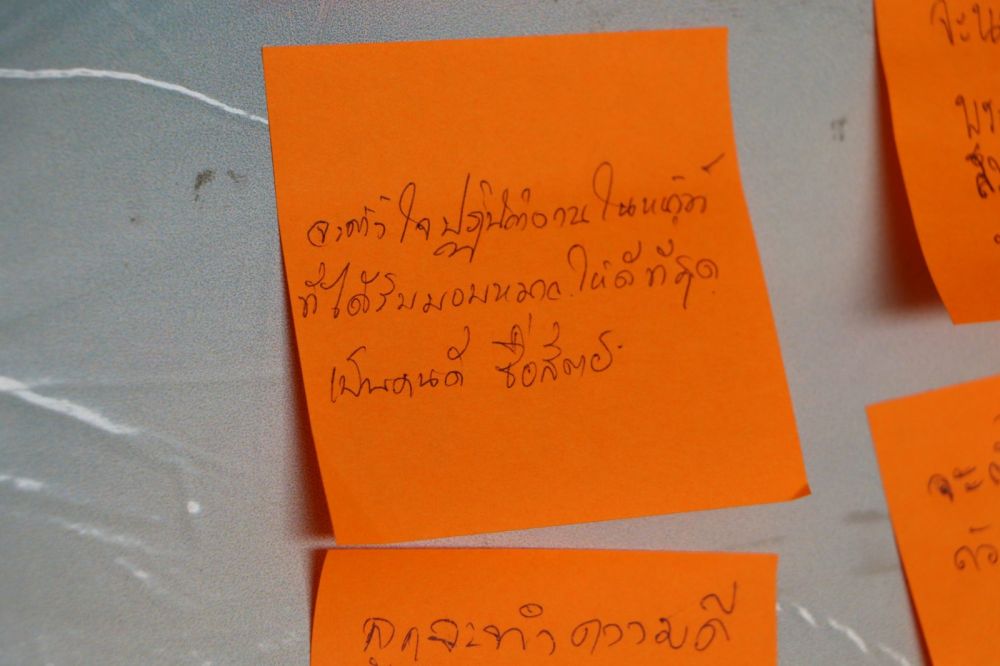 จะตั้งใจปฏิบัติงานในหน้าที่
ที่ได้รับมอบหมาย ให้ดีที่สุด
เป็นคนดี ซื่อสัตย์
ลูกจะทำความดี
จะ